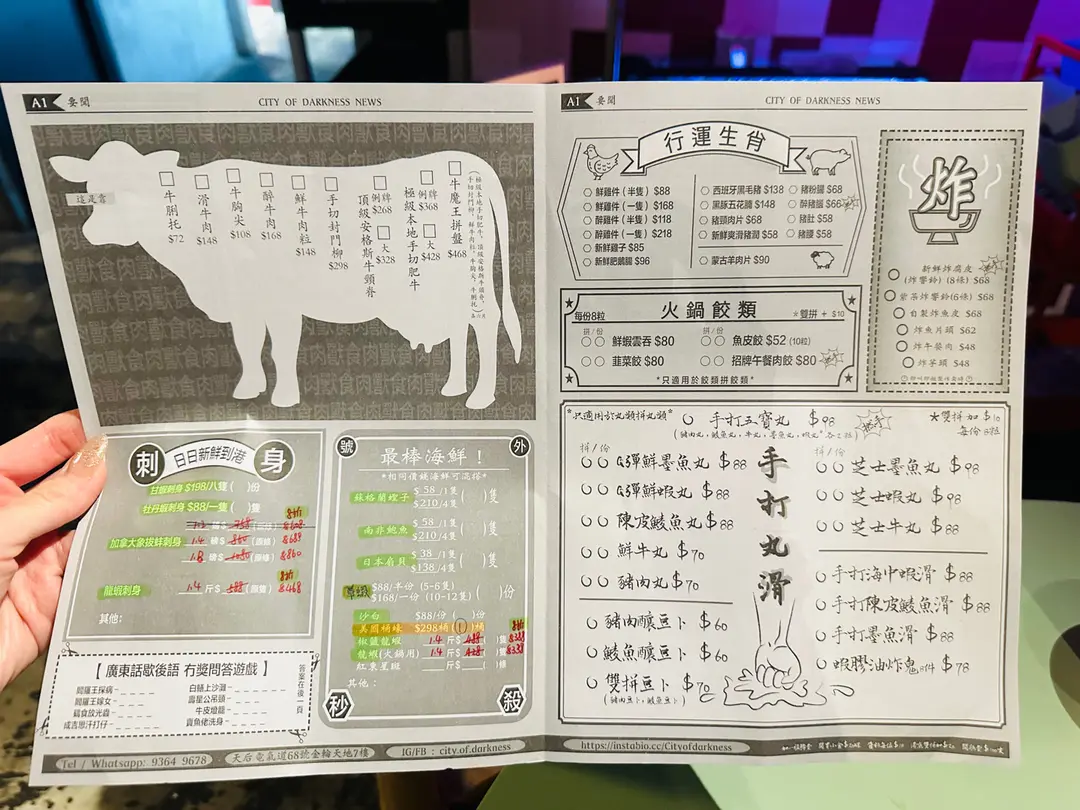 A1 要聞
CITY OF DARKNESS NEWS
牛魔王拼盤 $468
例牌 $368 大 $428 極級本地手切肥牛
例牌 $268 大 $328 頂級安格斯牛頸脊
手切封門柳 $298
鮮牛肉粒 $148
醉牛肉 $168
牛胸尖 $108
滑牛肉 $148
牛脷托 $72
刺 日日新鮮到港 身
甘蝦刺身 $198/八隻( )份
牡丹蝦刺身 $88/一隻( )隻
加拿大象拔蚌刺身
龍蝦刺身 1.4 斤$ (原隻) $468
其他:
號 外
最棒海鮮!
*相同價錢海鮮可混搭*
蘇格蘭蟶子 $58/1隻 $210/4隻 ( )隻
南非鮑魚 $58/1隻 $210/4隻 ( )隻
日本扇貝 $38/1隻 $138/4隻 ( )隻
$88/半份 (5-6隻)
$168/一份 (10-12隻) ( )份
沙白 $88/份( )份
美國桶蠔 $298桶(1)桶
椒鹽龍蝦 1.4 斤$ ( )隻 $338
龍蝦(火鍋用) 1.4 斤$ ( )隻 $338
紅東星斑 ( )條
其他:
秒 殺
【 廣東話歇後語 冇獎問答遊戲 】
答案在後一頁
閻羅王探病- 白鱔上沙灘-
閻羅王嫁女- 壽星公吊頸-
鷯食放光蟲- 牛皮燈籠-
成吉思汗打仔- 賣魚佬洗身-
Tel / Whatsapp: 9364 9678
天后電氣道68號金輪天地7樓
IG/FB : city.of.darkness
A1 要聞
CITY OF DARKNESS NEWS
行運生肖
鮮雞件 (半隻) $88
鮮雞件 (一隻) $168
醉雞件 (半隻) $118
醉雞件 (一隻) $218
新鮮雞子 $85
新鮮肥鵝腸 $96
西班牙黑毛豬 $138
黑豚五花腩 $148
豬頸肉片 $68
新鮮爽滑豬潤 $58
豬粉腸 $68
醉豬腦 $66
豬肚 $58
豬腰 $58
蒙古羊肉片 $90
炸
新鮮炸腐皮
(炸響鈴) (8條) $68
紫菜炸響鈴(6條) $68
自製炸魚皮 $68
炸魚片頭 $62
炸芋頭 $48
每份8粒 火鍋餃類 *雙拼 + $10
拼/份 拼/份
鮮蝦雲吞 $80 魚皮餃 $52 (10粒)
韮菜餃 $80 招牌午餐肉餃 $80
*只適用於餃類拼餃類*
*只適用於丸類拼丸類*
手打五寶丸 $98
*雙拼加 $10
每份8粒
手打丸滑
拼/份
G彈鮮墨魚丸 $88
G彈鮮蝦丸 $88
陳皮鯪魚丸 $88
鮮牛丸 $70
豬肉丸 $70
豬肉釀豆卜 $60
鯪魚釀豆卜 $60
雙拼豆卜 $70
(豬肉豆卜,鯪魚豆卜)
拼/份
芝士墨魚丸 $98
芝士蝦丸 $98
芝士牛丸 $88
手打海中蝦滑 $88
手打陳皮鯪魚滑 $88
手打墨魚滑 $88
蝦膠油炸鬼 8件 $78
https://instabio.cc/Cityofdarkness